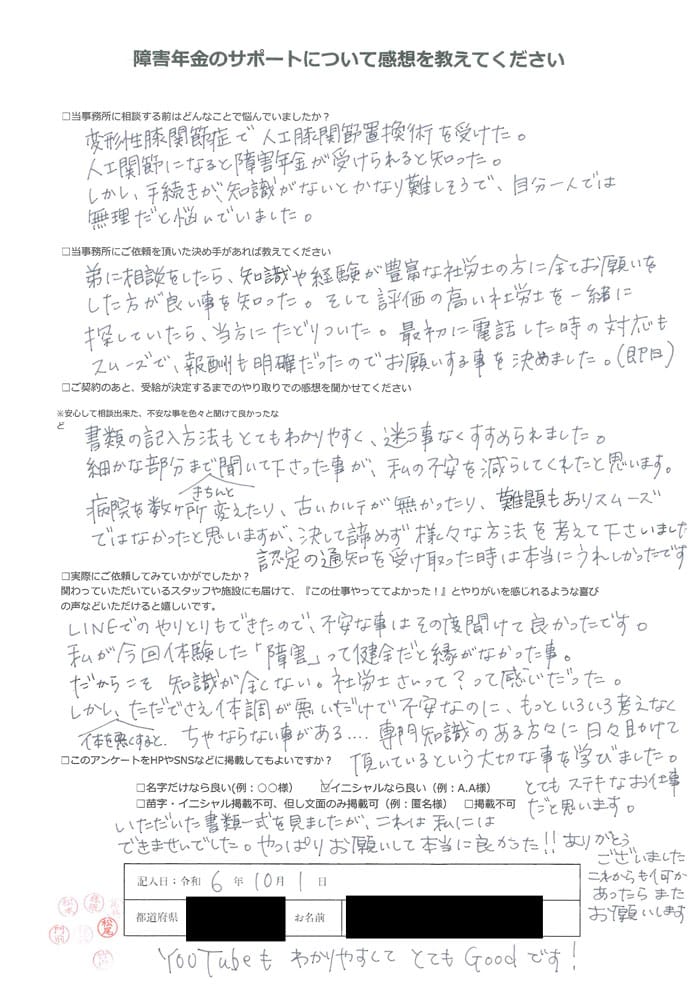 障害年金のサポートについて感想を教えてください
□当事務所に相談する前はどんなことで悩んでいましたか？
変形性膝関節症で人工膝関節置換術を受けた。
人工関節になると障害年金が受けられると知った。
しかし、手続きが、知識がないとかなり難しそうで、自分一人では
無理だと悩んでいました。
□当事務所にご依頼を頂いた決め手があれば教えてください
弟に相談をしたら、知識や経験が豊富な社労士の方に全てお願いを
した方が良い事を知った。そして評価の高い社労士を一緒に
探していたら、当方にたどりついた。最初に電話した時の対応も
スムーズで、報酬も明確だったのでお願いする事を決めました。(即日)
□ご契約のあと、受給が決定するまでのやり取りでの感想を聞かせてください
※安心して相談出来た、不安な事を色々と聞けて良かったな
ど
書類の記入方法もとてもわかりやすく、迷う事なくすすめられました。
細かな部分まで聞いて下さった事が、私の不安を減らしてくれたと思います。
きちんと
病院を数ヶ所変えたり、古いカルテが無かったり、難題もありスムーズ
ではなかったと思いますが、決して諦めず様々な方法を考えて下さいました
認定の通知を受け取った時は本当にうれしかったです
□実際にご依頼してみていかがでしたか？
関わっていただいているスタッフや施設にも届けて、『この仕事やっててよかった！』とやりがいを感じれるような喜び
の声などいただけると嬉しいです。
LINEでのやりとりもできたので、不安な事はその度聞けて良かったです。
私が今回体験した「障害」って健全だと縁がなかった事。
だからこそ 知識が全くない。社労士さいって？って感じだった。
しかし、ただでさえ体調が悪いだけで不安なのに、もっといろいろ考えなく
体を悪くすると、ちゃならない事がある....専門知識のある方々に日々助けて
頂いているという大切な事を学びました。
□このアンケートをHPやSNSなどに掲載してもよいですか？
□名字だけなら良い(例：○○様) ☑イニシャルなら良い（例：A.A様）
とてもステキなお仕事
□苗字・イニシャル掲載不可、但し文面のみ掲載可（例：匿名様） □掲載不可
だと思います。
いただいた書類一式を見ましたが、これは私には
できませいでした。やっぱりお願いして本当に良かった!!ありがとう
ございました
これからも何か
あったらまた
お願いします
記入日：令和 6 年 10 月 1 日
都道府県 お名前
松尾
YouTubeもわかりやすくてとてもGoodです！